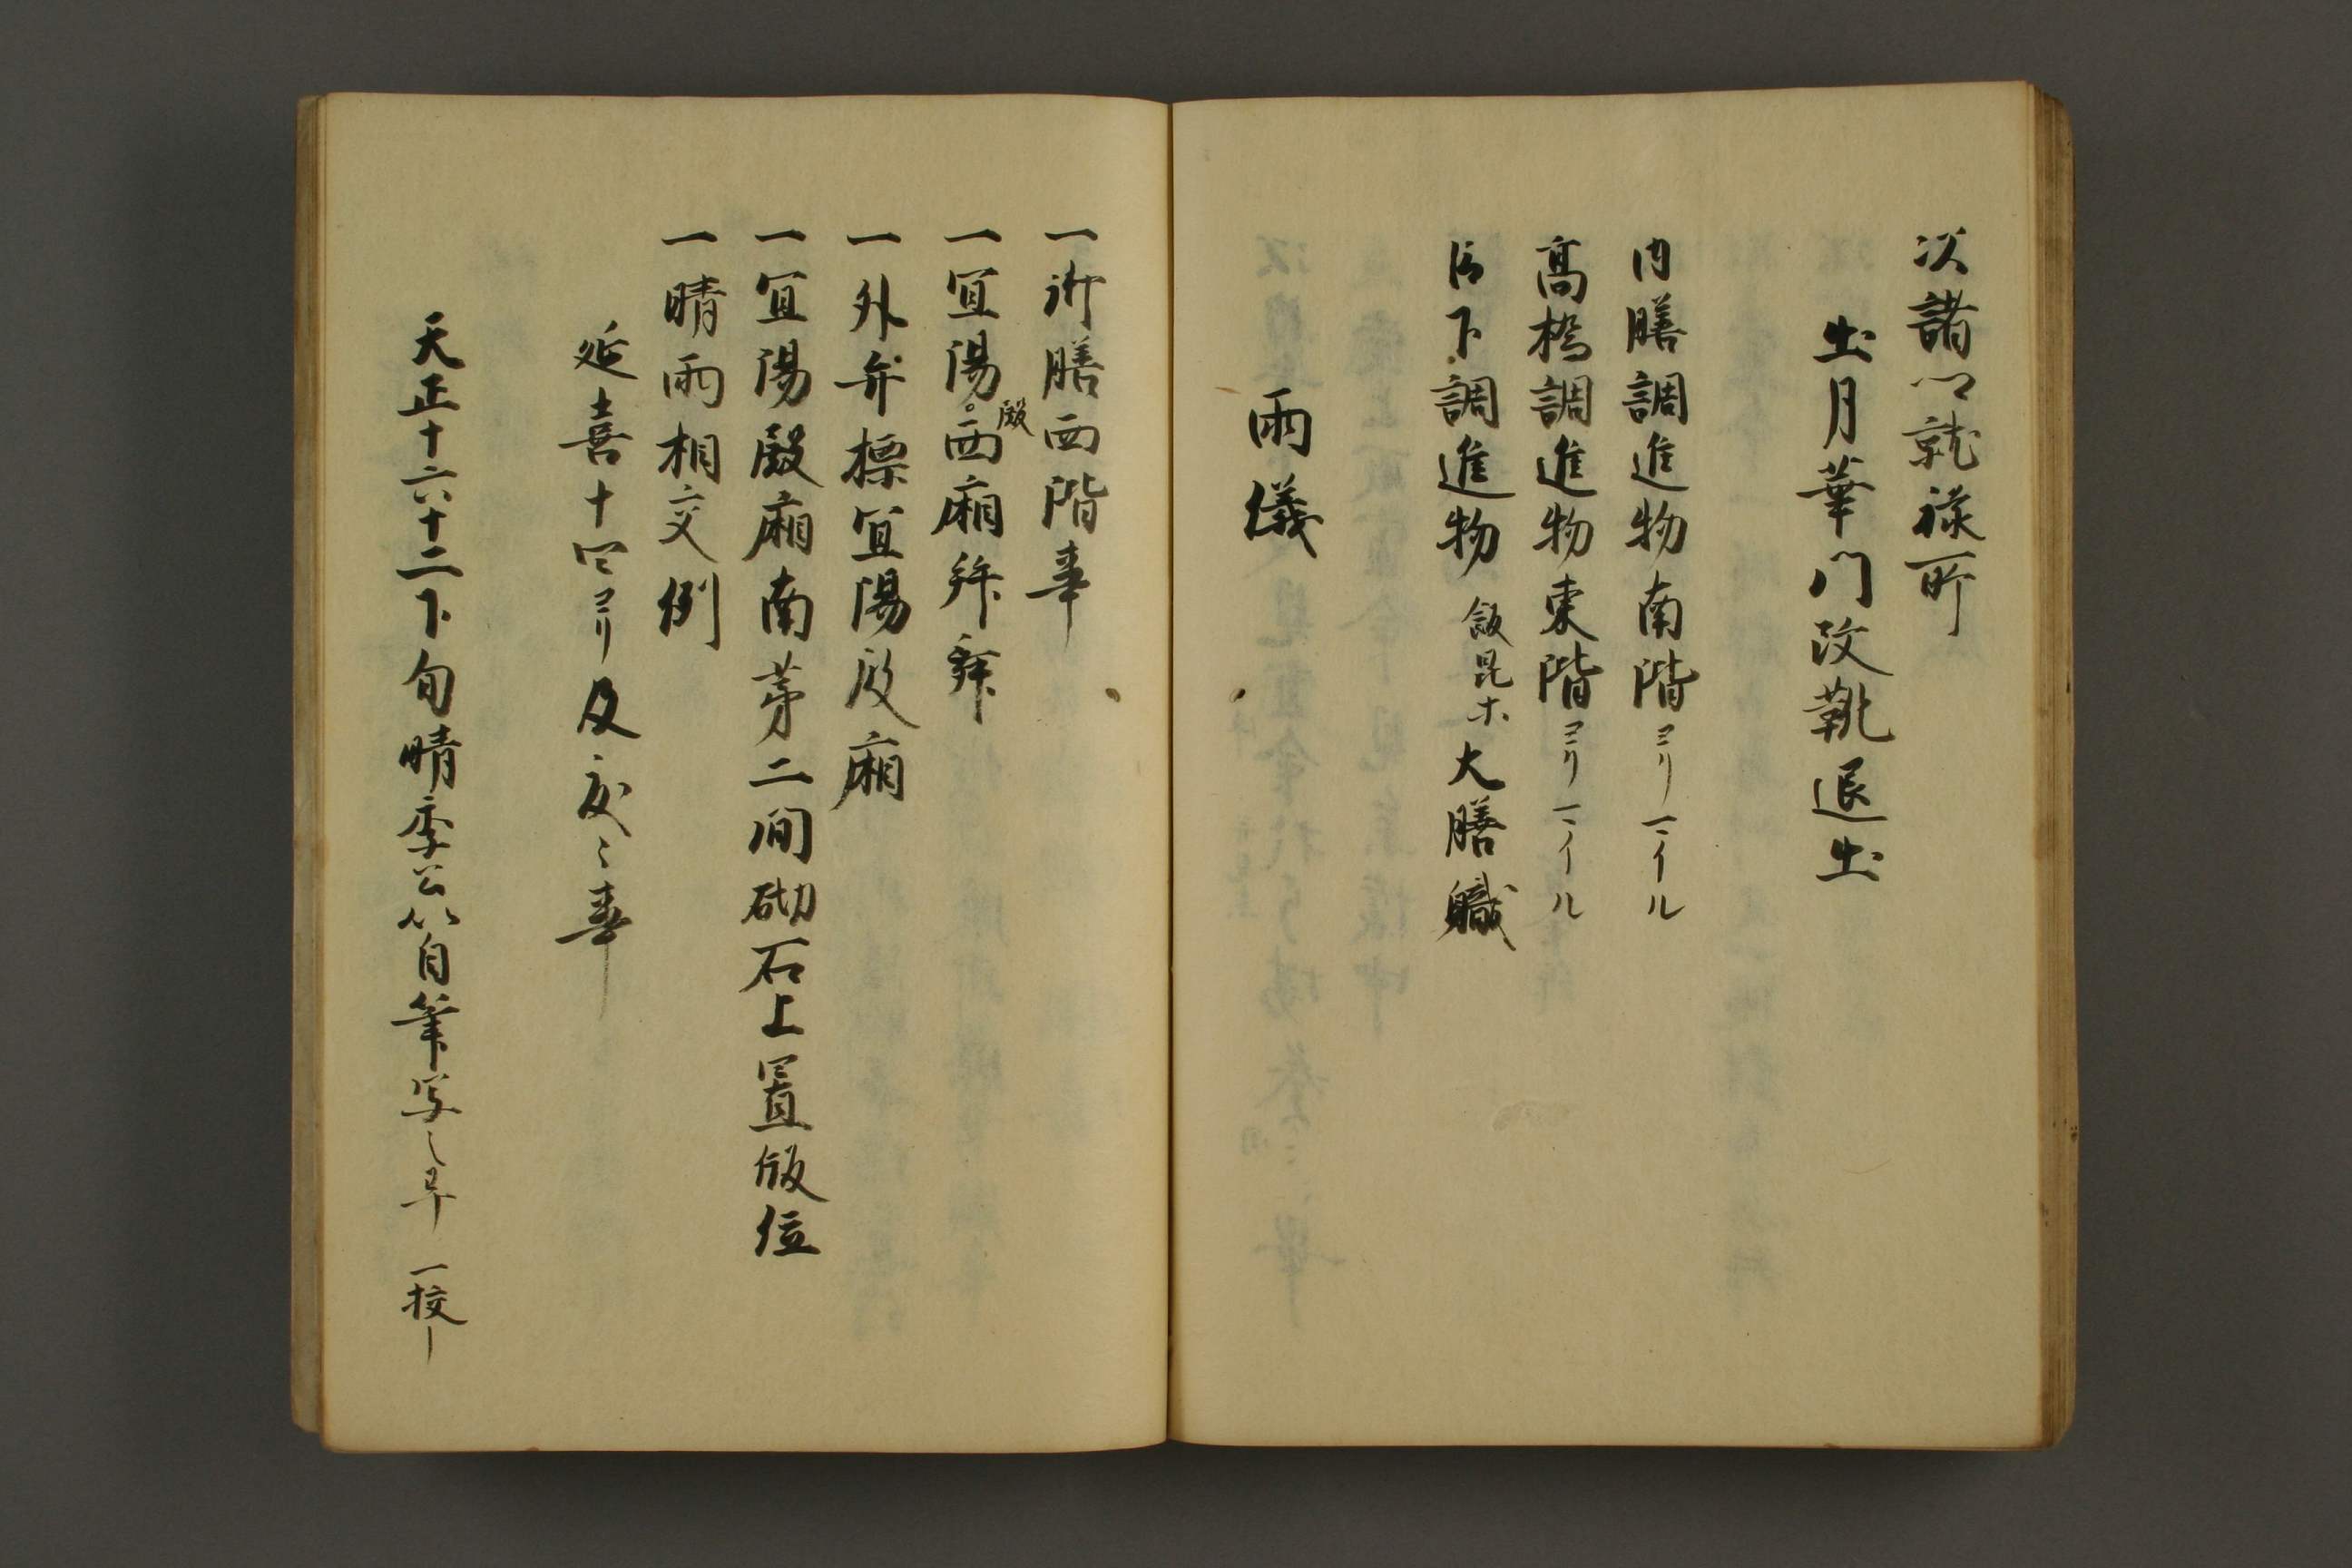 次諸卿就禄所
出月華門改靴退出
内膳調進物南階ヨリマイル
高橋調進物東階ヨリマイル
臣下調進物 飯昆ホ大膳職
雨儀
一御膳西階事
一宜陽殿西廂拜舞
一外弁標宜陽殿廂
一宜陽殿廂南第二間砌石上置版位
一晴雨相交例
延喜十四ヨリ及度々事
天正十六十二下旬晴季公以自筆写之畢 一校